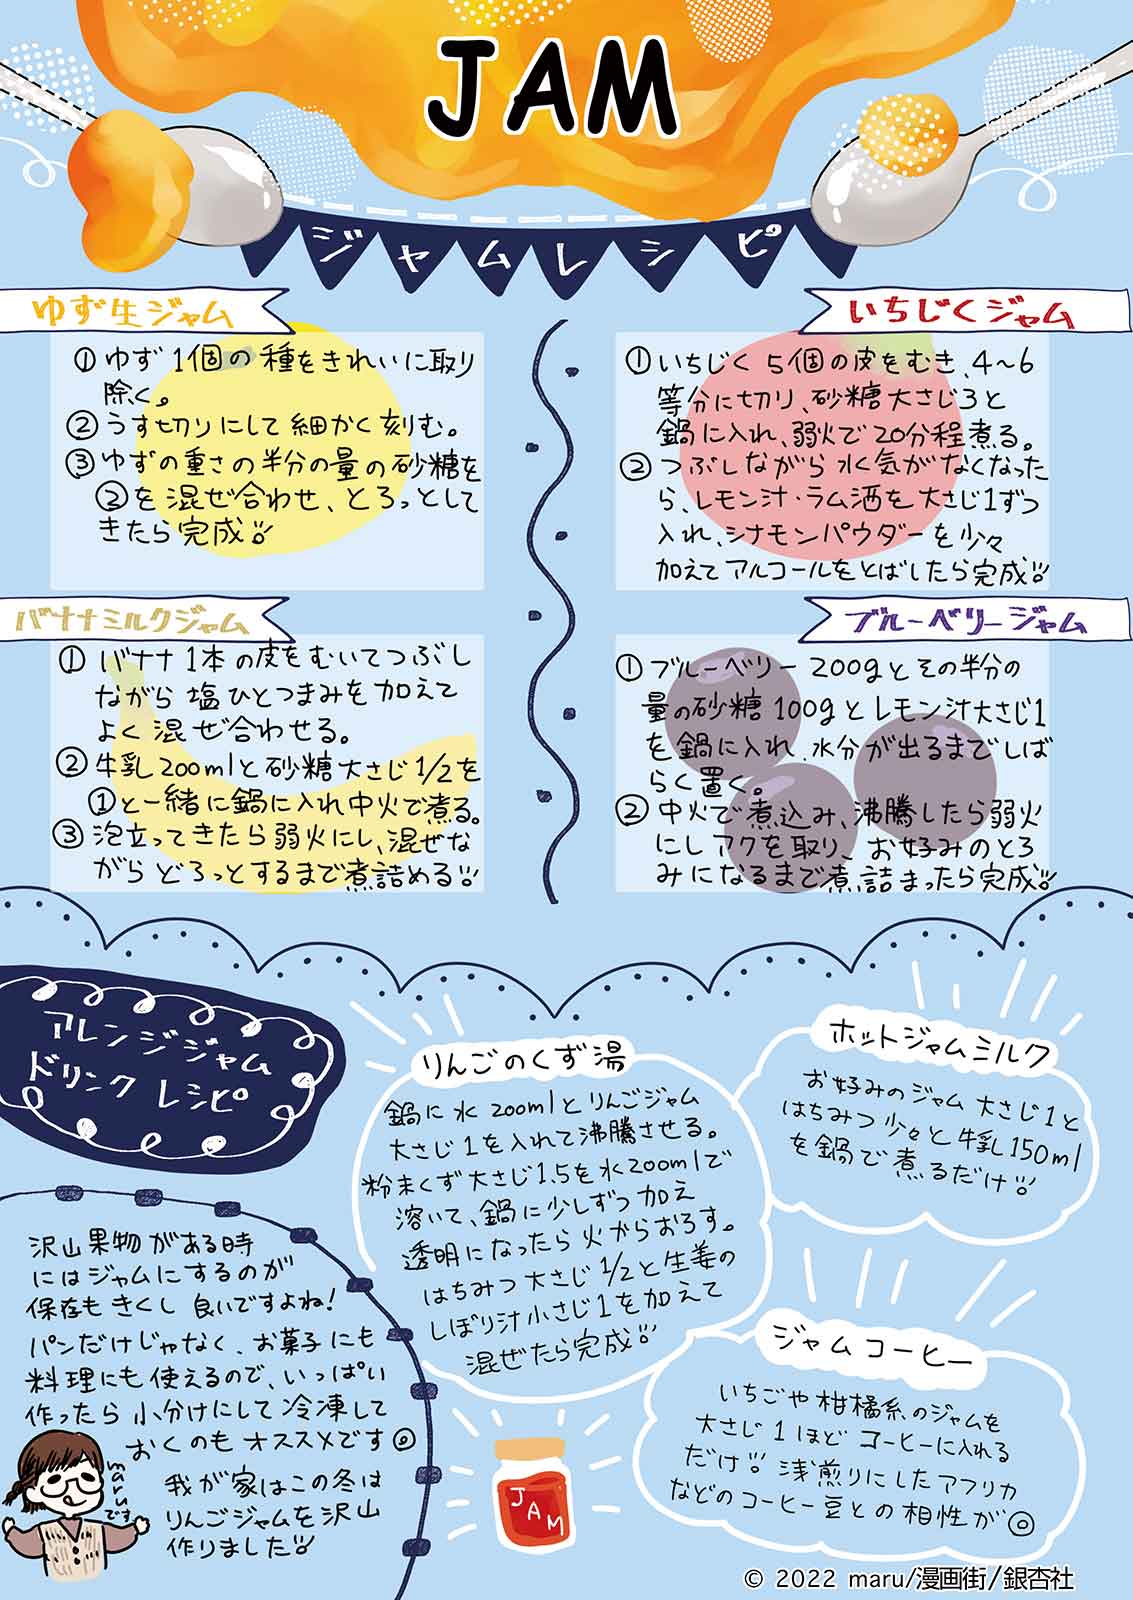 JAM
ジャムレシピ
ゆず生ジャム
①ゆず1個の種をきれいに取り
除く。
②うす切りにして細かく刻む。
③ゆずの重さの半分の量の砂糖を
②を混ぜ合わせ、とろっとして
きたら完成!!
いちじくジャム
①いちじく5個の皮をむき、4〜6
等分に切り、砂糖大さじ3と
鍋に入れ、弱火で20分程煮る。
②つぶしながら水気がなくなった
ら、レモン汁・ラム酒を大さじ1ずつ
入れ、シナモンパウダーを少々
加えてアルコールをとばしたら完成!!
バナナミルクジャム
①バナナ1本の皮をむいてつぶし
ながら塩ひとつまみを加えて
よく混ぜ合わせる。
②牛乳200mlと砂糖大さじ1/2を
①と一緒に鍋に入れ中火で煮る。
③泡立ってきたら弱火にし、混ぜな
がらどろっとするまで煮詰める!!
ブルーベリージャム
①ブルーベリー200gとその半分の
量の砂糖100gとレモン汁大さじ1
を鍋に入れ、水分が出るまでしば
らく置く。
②中火で煮込み、沸騰したら弱火
にしアクを取り、お好みのとろ
みになるまで煮詰まったら完成!!
アレンジジャム
ドリンクレシピ
りんごのくず湯
鍋に水200mlとりんごジャム
大さじ1を入れて沸騰させる。
粉末くず大さじ1.5を水200mlで
溶いて、鍋に少しずつ加え
透明になったら火からおろす。
はちみつ大さじ1/2と生姜の
しぼり汁小さじ1を加えて
混ぜたら完成!!
ホットジャムミルク
お好みのジャム大さじ1と
はちみつ少々と牛乳150ml
を鍋で煮るだけ!!
ジャムコーヒー
いちごや柑橘系のジャムを
大さじ1ほどコーヒーに入れる
だけ!!浅煎りにしたアフリカ
などのコーヒー豆との相性が◎
沢山果物がある時
にはジャムにするのが
保存もきくし良いですよね!
パンだけじゃなく、お菓子にも
料理にも使えるので、いっぱい
作ったら小分けにして冷凍して
おくのもオススメです◎
我が家はこの冬は
りんごジャムを沢山
作りました!!
maruです
JAM
© 2022 maru/漫画街/銀杏社